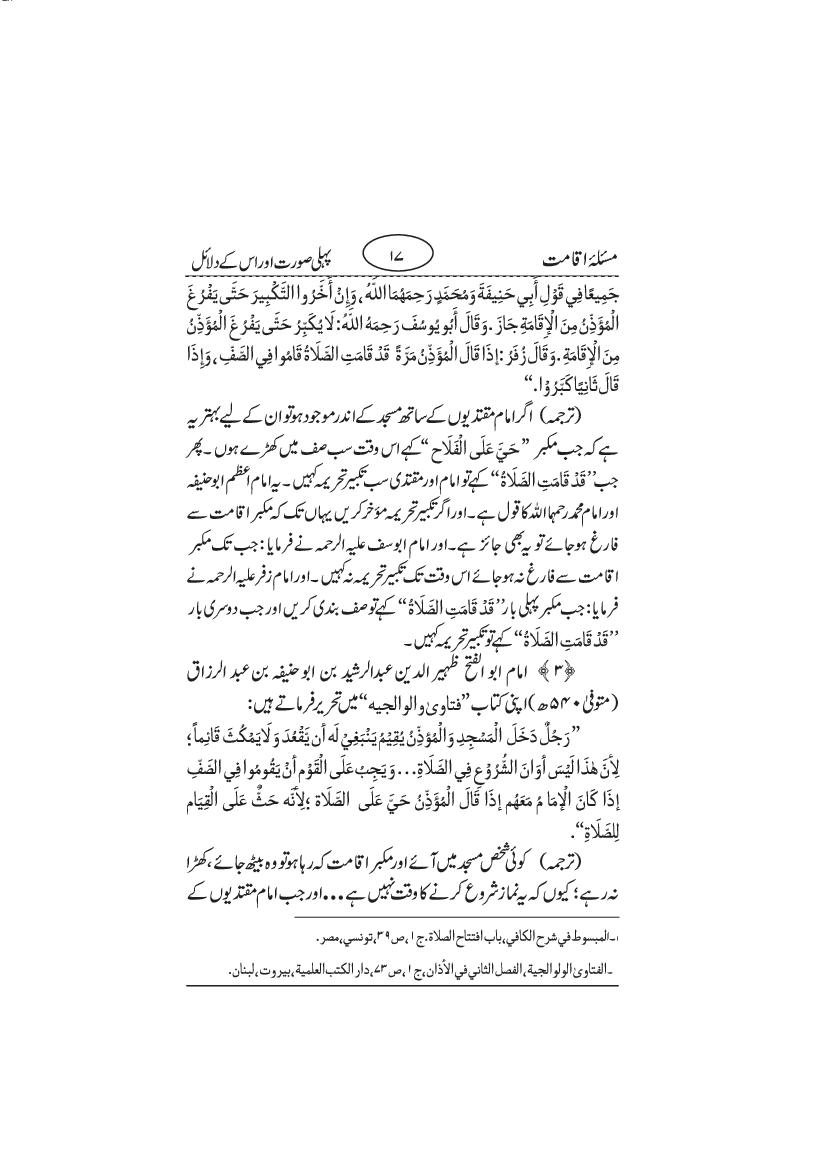 مسئلۂ اقامت ۱۷ پہلی صورت اور اس کے دلائل
جَمِيعًا فِي قَوْلِ أَبِي حَنِيفَةَ وَمُحَمَّدٍ رَحِمَهُمَا اللّٰهُ، وَإِنْ أَخَّرُوا التَّكْبِيرَ حَتَّى يَفْرُغَ
الْمُؤَذِّنُ مِنَ الْإِقَامَةِ جَازَ. وَقَالَ أَبُو يُوسُفَ رَحِمَهُ اللّٰهُ: لَا يُكَبِّرُ حَتَّى يَفْرُغَ الْمُؤَذِّنُ
مِنَ الْإِقَامَةِ. وَقَالَ زُفَرُ: إِذَا قَالَ الْمُؤَذِّنُ مَرَّةً قَدْ قَامَتِ الصَّلَاةُ قَامُوا فِي الصَّفِّ، وَإِذَا
قَالَ ثَانِيًا كَبَّرُوْا.“
(ترجمہ) اگر امام مقتدیوں کے ساتھ مسجد کے اندر موجود ہو تو ان کے لیے بہتر یہ
ہے کہ جب مکبر ”حَيَّ عَلَى الْفَلَاح“ کہے اس وقت سب صف میں کھڑے ہوں۔ پھر
جب ’’قَدْ قَامَتِ الصَّلَاةُ‘‘ کہے تو امام اور مقتدی سب تکبیر تحریمہ کہیں۔ یہ امام اعظم ابو حنیفہ
اور امام محمد رحمہما اللہ کا قول ہے۔ اور اگر تکبیر تحریمہ مؤخر کریں یہاں تک کہ مکبر اقامت سے
فارغ ہو جائے تو یہ بھی جائز ہے۔ اور امام ابو سف علیہ الرحمہ نے فرمایا: جب تک مکبر
اقامت سے فارغ نہ ہو جائے اس وقت تک تکبیر تحریمہ نہ کہیں۔ اور امام زفر علیہ الرحمہ نے
فرمایا: جب مکبر پہلی بار ’’قَدْ قَامَتِ الصَّلَاةُ‘‘ کہے تو صف بندی کریں اور جب دوسری بار
’’قَدْ قَامَتِ الصَّلَاةُ‘‘ کہے تو تکبیر تحریمہ کہیں۔
﴿۳﴾ امام ابو الفتح ظہیر الدین عبد الرشید بن ابو حنیفہ بن عبد الرزاق
(متوفیٰ ۵۴۰ھ) اپنی کتاب ”فتاویٰ والوالجیه“ میں تحریر فرماتے ہیں:
”رَجُلٌ دَخَلَ الْمَسْجِدِ وَالْمُؤذِّنُ يُقِيْمُ يَنْبَغِيْ لَه أن يَقْعُدَ وَلَا يَمْكُثَ قَائِماً؛
لِأنَّ هٰذَا لَيْسَ أوَانَ الشُّرُوْعِ فِي الصَّلَاةِ... وَيَجِبُ عَلَى الْقَوْمِ أنْ يَقُومُوا فِي الصَّفِّ
إذَا كَانَ الْإمَامُ مَعَهُم إذَا قَالَ الْمُؤَذِّنُ حَيَّ عَلَى الصَّلَاة ؛لِأنَّه حَثٌّ عَلَى الْقِيَام
لِلصَّلَاةِ“.
(ترجمہ) کوئی شخص مسجد میں آئے اور مکبر اقامت کہ رہا ہو تو وہ بیٹھ جائے، کھڑا
نہ رہے؛ کیوں کہ یہ نماز شروع کرنے کا وقت نہیں ہے... اور جب امام مقتدیوں کے
۱۔المبسوط في شرح الكافي، باب افتتاح الصلاة. ج ۱، ص ۳۹، تونسي، مصر.
۔الفتاویٰ الولوالجية، الفصل الثاني في الأذان، ج ۱، ص ۷۳، دار الكتب العلمية، بيروت، لبنان.